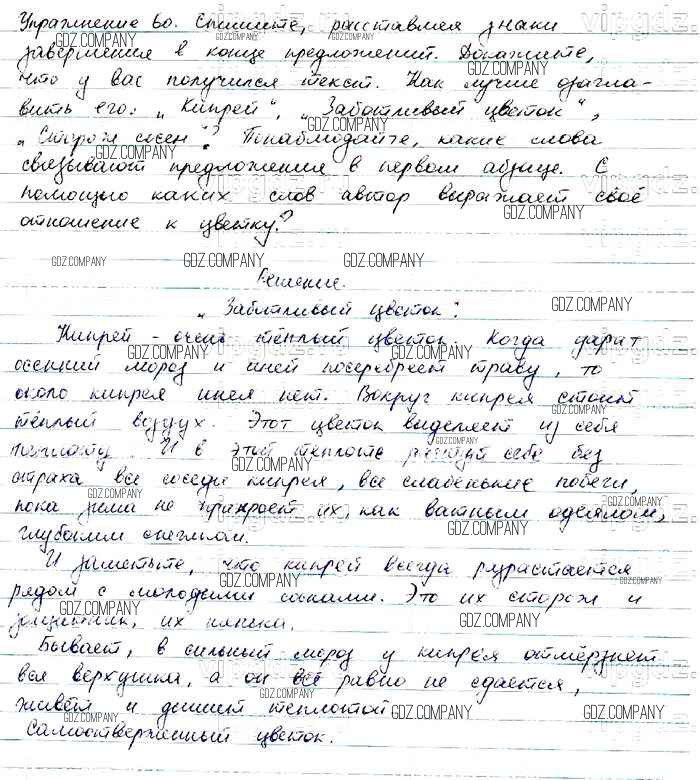 Упражнение 60. Спишите, расставляя знаки
завершения в конце предложений. Докажите,
что у вас получился текст. Как лучше озагла-
вить его: „Кипрей“, „Заботливый цветок“,
„Сторож сосен“? Понаблюдайте, какие слова
связывают предложения в первом абзаце. С
помощью каких слов автор выражает своё
отношение к цветку?
Решение.
„Заботливый цветок“.
Кипрей - очень тёплый цветок. Когда ударит
осенний мороз и иней посеребреет траву, то
около кипрея инея нет. Вокруг кипрея стоит
тёплый воздух. Этот цветок выделяет из себя
теплоту. И в этой теплоте растут себе без
страха все соседи кипрея, все слабенькие побеги,
пока зима не прикроет их, как ватным одеялом,
глубоким снегом.
И заметьте, что кипрей всегда
рядом с молодыми соснами. Это их сторож и
защитник, их нянька.
Бывает, в сильный мороз у кипрея отмёрзнет
вся верхушка, а он всё равно не сдается,
живёт и дышит теплотой
Самоотверженный цветок.
GDZ.COMPANY
vipgdz.ru